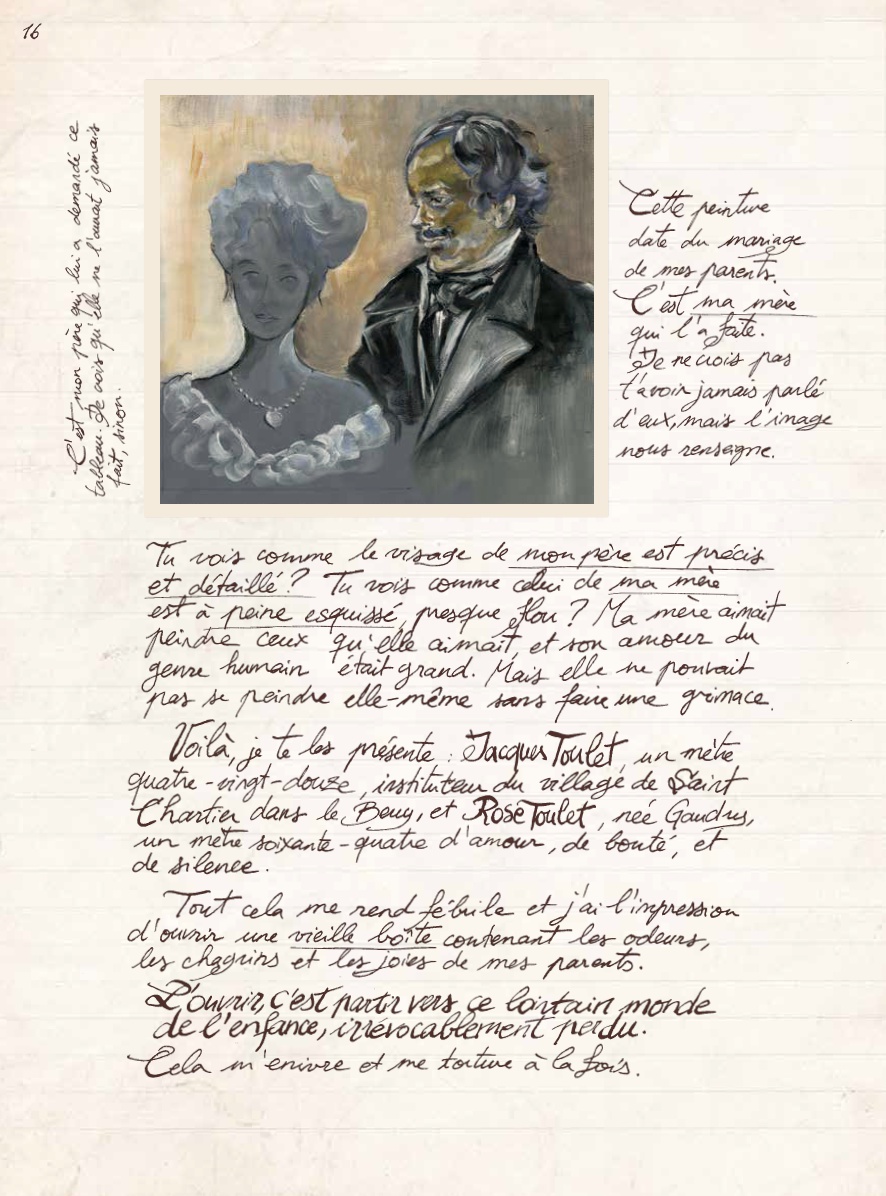 16
C'est mon père qui lui a demandé ce
tableau. Je crois qu'elle ne l'aurait jamais
fait, sinon.
Cette peinture
date du mariage
de mes parents.
C'est ma mère
qui l'a faite.
Je ne crois pas
t'avoir jamais parlé
d'eux, mais l'image
nous renseigne.
Tu vois comme le visage de mon père est précis
et détaillé ? Tu vois comme celui de ma mère
est à peine esquissé, presque flou ? Ma mère aimait
peindre ceux qu'elle aimait, et son amour du
genre humain était grand. Mais elle ne pouvait
pas se peindre elle-même sans faire une grimace.
Voilà, je te les présente : Jacques Toulet, un mètre
quatre-vingt-douze, instituteur du village de Saint
Chartier dans le Berry, et Rose Toulet, née Gaudry,
un mètre soixante-quatre d'amour, de bonté, et
de silence.
Tout cela me rend fébrile et j'ai l'impression
d'ouvrir une vieille boîte contenant les odeurs,
les chagrins et les joies de mes parents.
L'ouvrir, c'est partir vers ce lointain monde
de l'enfance, irrévocablement perdu.
Cela m'enivre et me torture à la fois.